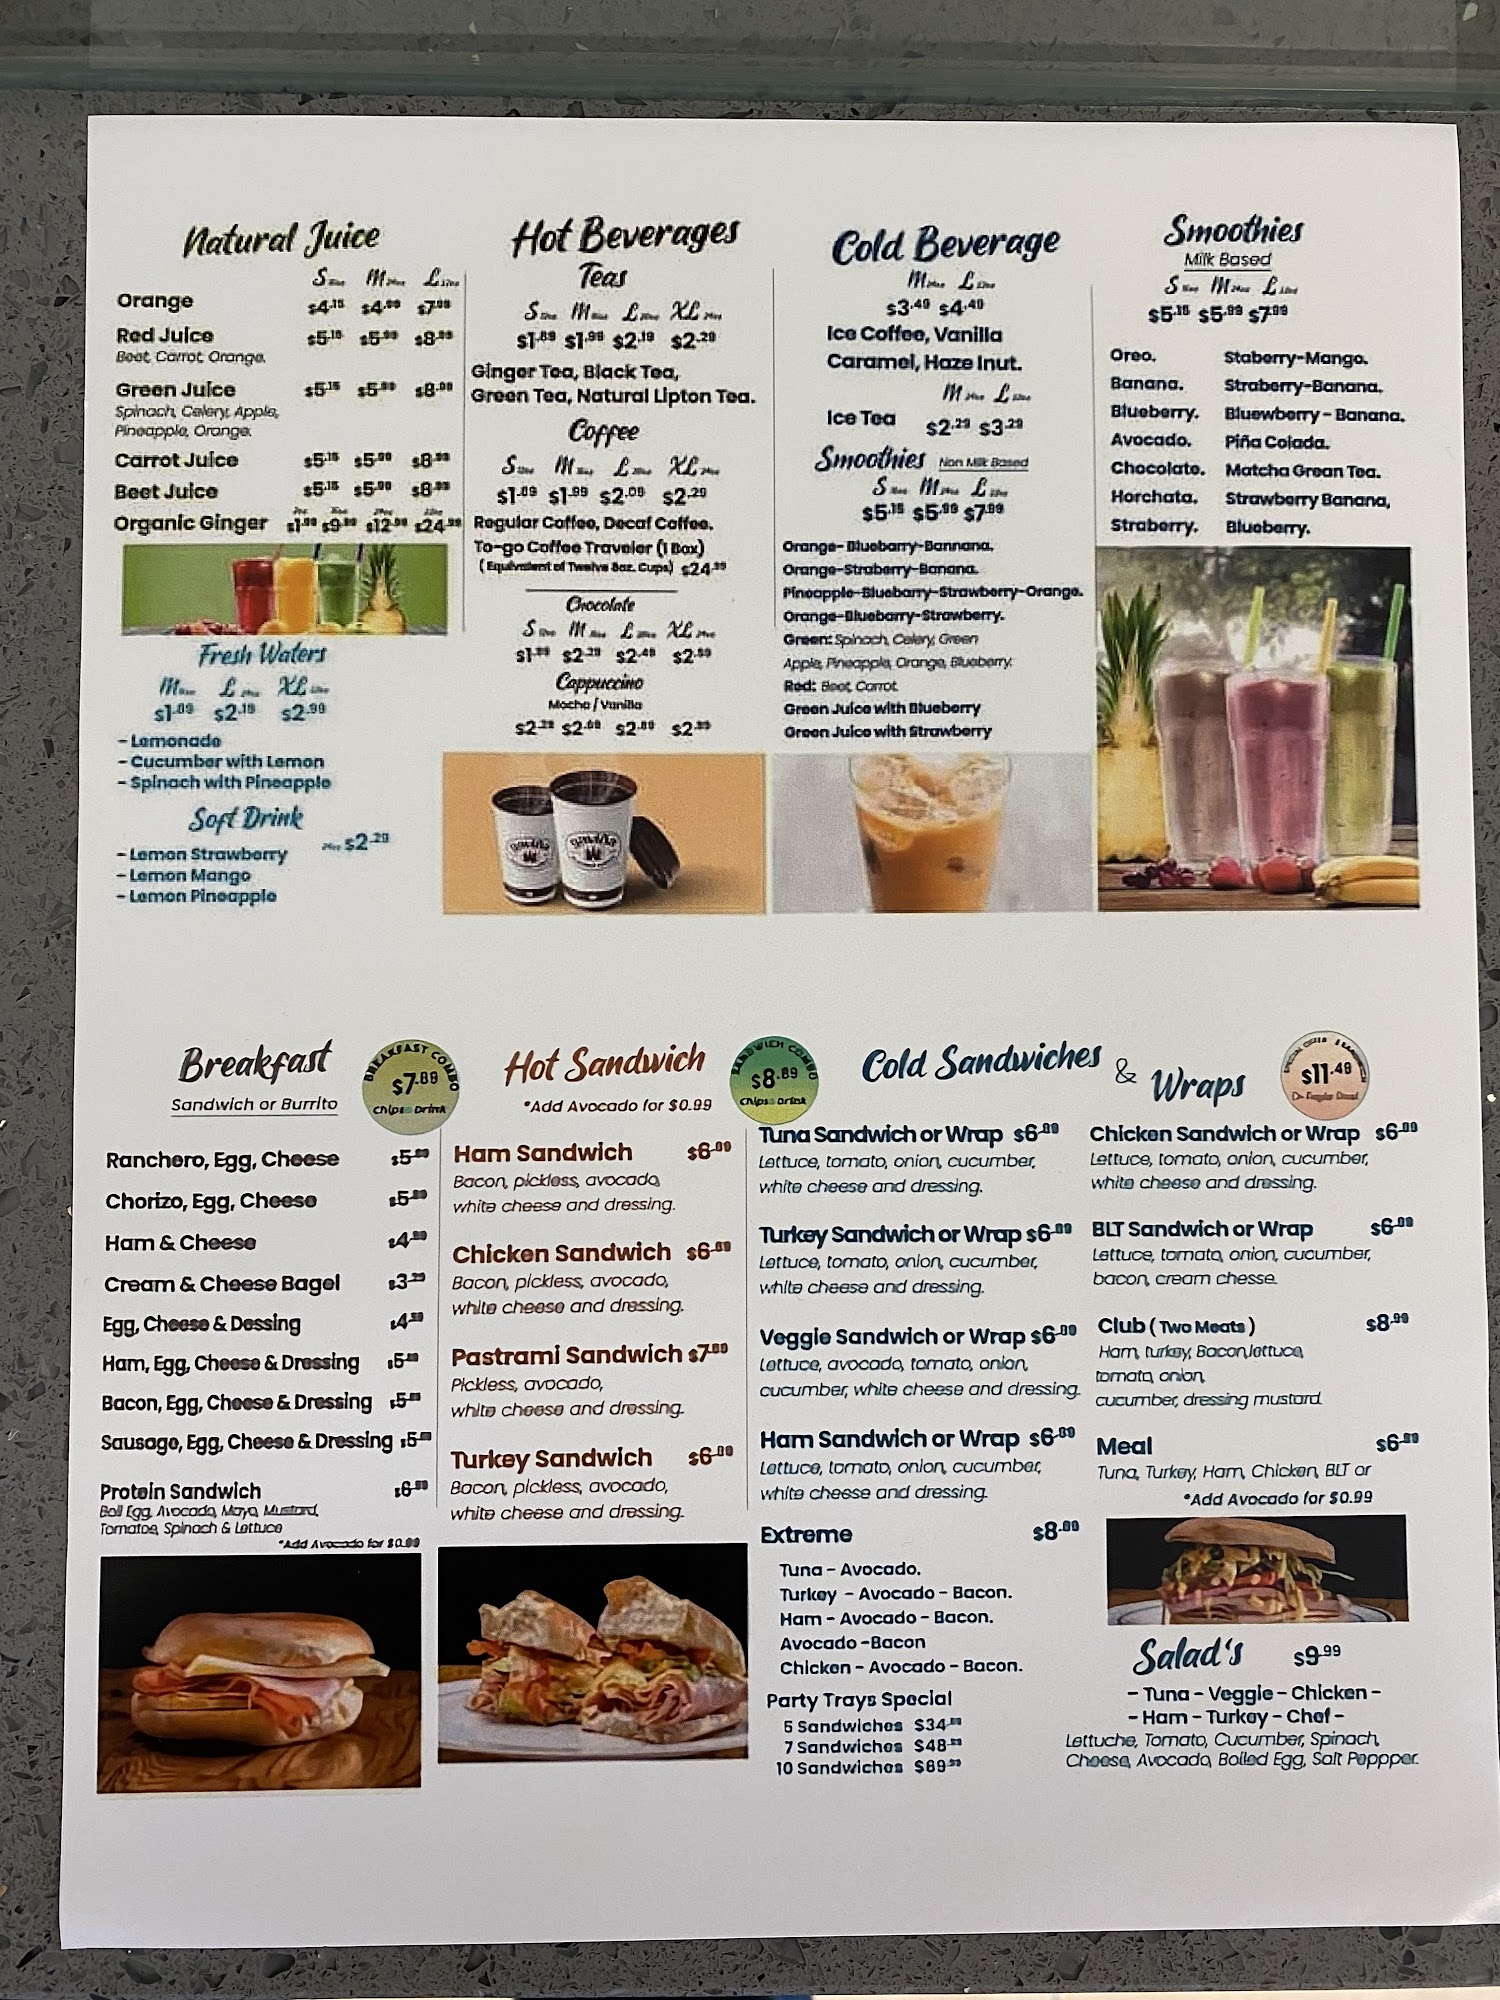 Natural Juice
S M L
Orange $4.15 $4.99 $7.99
Red Juice $5.15 $5.99 $8.99
Beet, Carrot, Orange.
Green Juice $5.15 $5.99 $8.99
Spinach, Celery, Apple,
Pineapple, Orange.
Carrot Juice $5.15 $5.99 $8.99
Beet Juice $5.15 $5.99 $8.99
Organic Ginger $1.99 $9.99 $12.99 $24.99
Fresh Waters
M L XL
$1.89 $2.19 $2.99
- Lemonade
- Cucumber with Lemon
- Spinach with Pineapple
Soft Drink
$2.29
- Lemon Strawberry
- Lemon Mango
- Lemon Pineapple
Hot Beverages
Teas
S M L XL
$1.89 $1.99 $2.19 $2.29
Ginger Tea, Black Tea,
Green Tea, Natural Lipton Tea.
Coffee
S M L XL
$1.89 $1.99 $2.09 $2.29
Regular Coffee, Decaf Coffee.
To-go Coffee Traveler (1 Box)
(Equivalent of Twelve 8oz. Cups) $24.99
Chocolate
S M L XL
$2.29 $2.49
Cappuccino
Mocha / Vanilla
$2.29
Cold Beverage
M L
$3.49 $4.49
Ice Coffee, Vanilla
Caramel, Haze Inut.
M L
Ice Tea $2.29 $3.29
Smoothies Non Milk Based
S M L
$5.15 $5.99 $7.99
Orange-Bluebarry-Bannana.
Orange-Straberry-Banana.
Pineapple-Bluebarry-Strawberry-Orange.
Orange-Bluebarry-Strawberry.
Green: Spinach, Celery, Green
Apple, Pineapple, Orange, Blueberry.
Red: Beet, Carrot
Green Juice with Blueberry
Green Juice with Strawberry
Smoothies
Milk Based
S M L
$5.15 $5.99 $7.99
Oreo. Staberry-Mango.
Banana. Straberry-Banana.
Blueberry. Bluewberry - Banana.
Avocado. Piña Colada.
Chocolate. Matcha Grean Tea.
Horchata. Strawberry Banana,
Straberry. Blueberry.
Breakfast
Sandwich or Burrito
BREAKFAST COMBO
$7.89
Chips Drink
Ranchero, Egg, Cheese
Chorizo, Egg, Cheese
Ham & Cheese
Cream & Cheese Bagel
Egg, Cheese & Dessing
Ham, Egg, Cheese & Dressing
Bacon, Egg, Cheese & Dressing
Sausage, Egg, Cheese & Dressing
Protein Sandwich
Boil Egg, Avocado, Mayo, Mustard,
Tomatoe, Spinach & Lettuce
*Add Avocado for $0.99
Hot Sandwich
*Add Avocado for $0.99
SANDWICH COMBO
$8.89
Chips Drink
Ham Sandwich
Bacon, pickless, avocado,
white cheese and dressing.
Chicken Sandwich
Bacon, pickless, avocado,
white cheese and dressing.
Pastrami Sandwich
Pickless, avocado,
white cheese and dressing.
Turkey Sandwich
Bacon, pickless, avocado,
white cheese and dressing.
Cold Sandwiches & Wraps
$11.49
Tuna Sandwich or Wrap
Lettuce, tomato, onion, cucumber,
white cheese and dressing.
Turkey Sandwich or Wrap
Lettuce, tomato, onion, cucumber,
white cheese and dressing.
Veggie Sandwich or Wrap
Lettuce, avocado, tomato, onion,
cucumber, white cheese and dressing.
Ham Sandwich or Wrap
Lettuce, tomato, onion, cucumber,
white cheese and dressing.
Extreme
Tuna - Avocado.
Turkey - Avocado - Bacon.
Ham - Avocado - Bacon.
Avocado -Bacon
Chicken - Avocado - Bacon.
Party Trays Special
5 Sandwiches
7 Sandwiches
10 Sandwiches
Chicken Sandwich or Wrap
Lettuce, tomato, onion, cucumber,
white cheese and dressing.
BLT Sandwich or Wrap
Lettuce, tomato, onion, cucumber,
bacon, cream chesse.
Club ( Two Meats ) $8.99
Ham, turkey, Bacon,lettuce,
tomato, onion,
cucumber, dressing mustard.
Meal
Tuna, Turkey, Ham, Chicken, BLT or
*Add Avocado for $0.99
Salad's $9.99
- Tuna - Veggie - Chicken -
- Ham - Turkey - Chef -
Lettuche, Tomato, Cucumber, Spinach,
Cheese, Avocado, Boiled Egg, Salt Poppper.